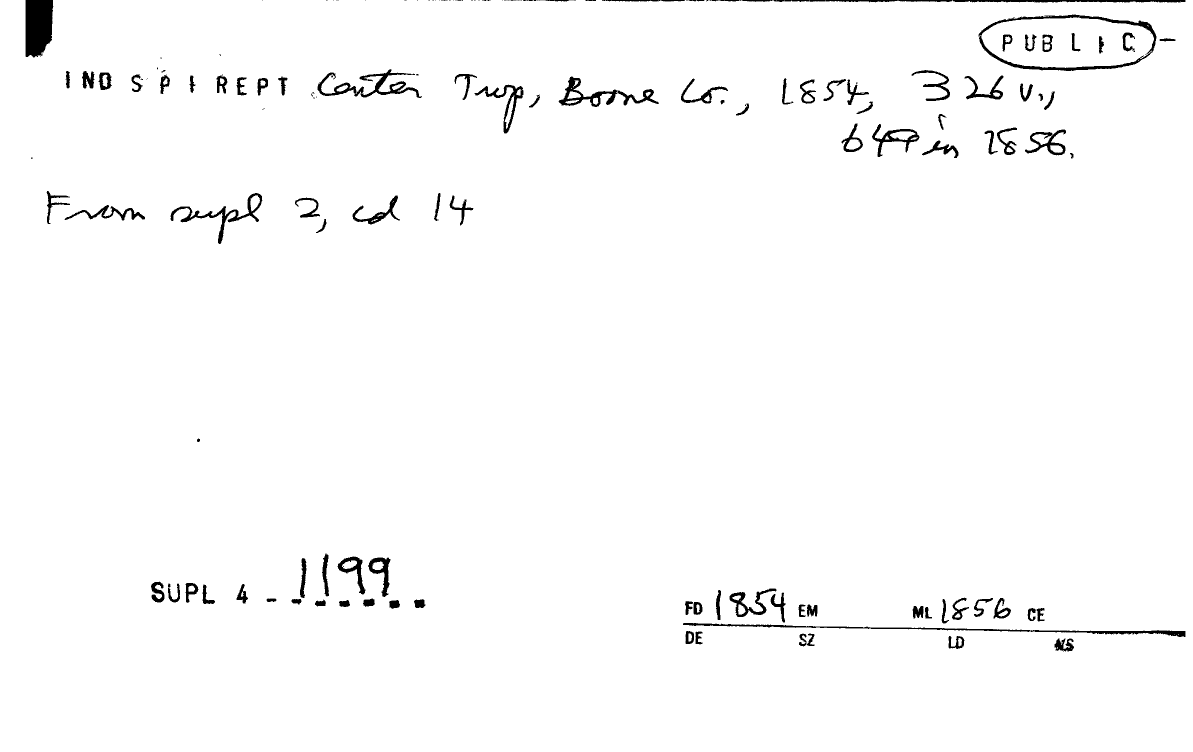 PUBLIC -
IND SPI REPT Center Twp, Boone Co., 1854, 326 v.,
649 in 1856.
From supl 2, cd 14
SUPL 4 - 1199
FD 1854 EM ML 1856 CE
DE SZ LD NS